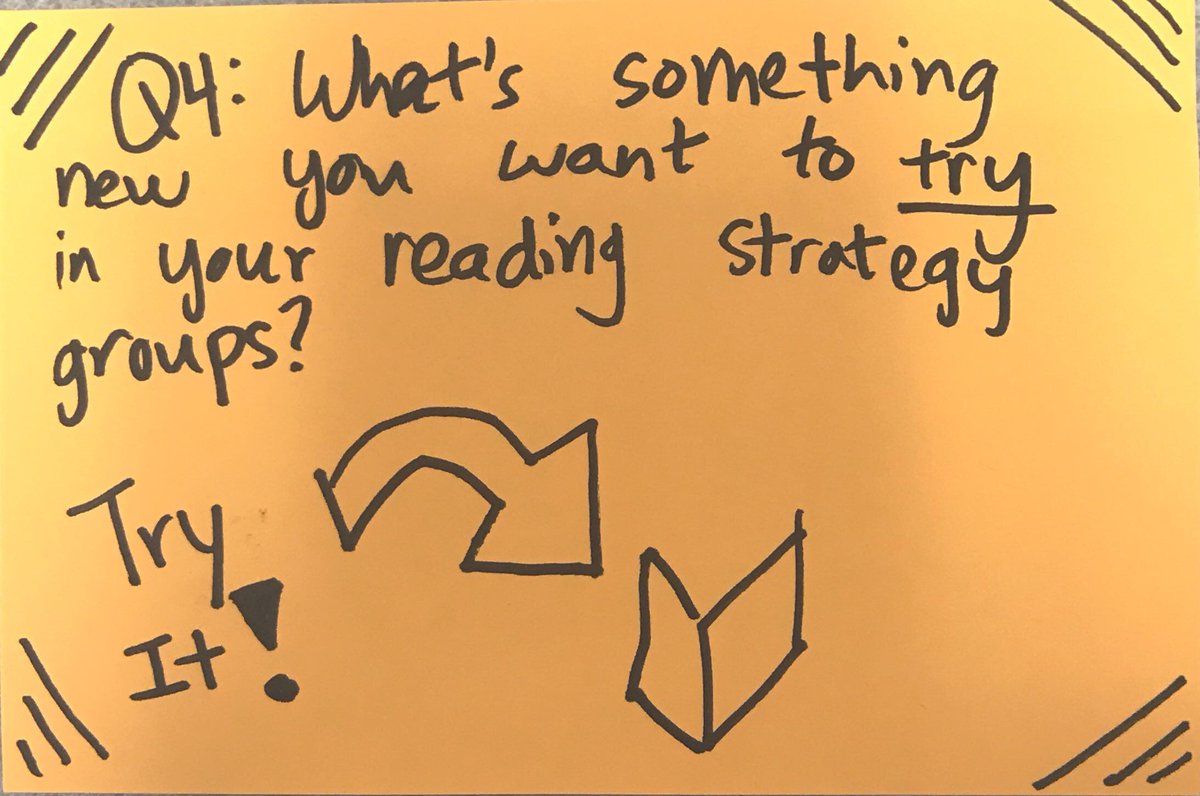 Q4: What's something
new you want to try
in your reading strategy
groups?
Try
It!